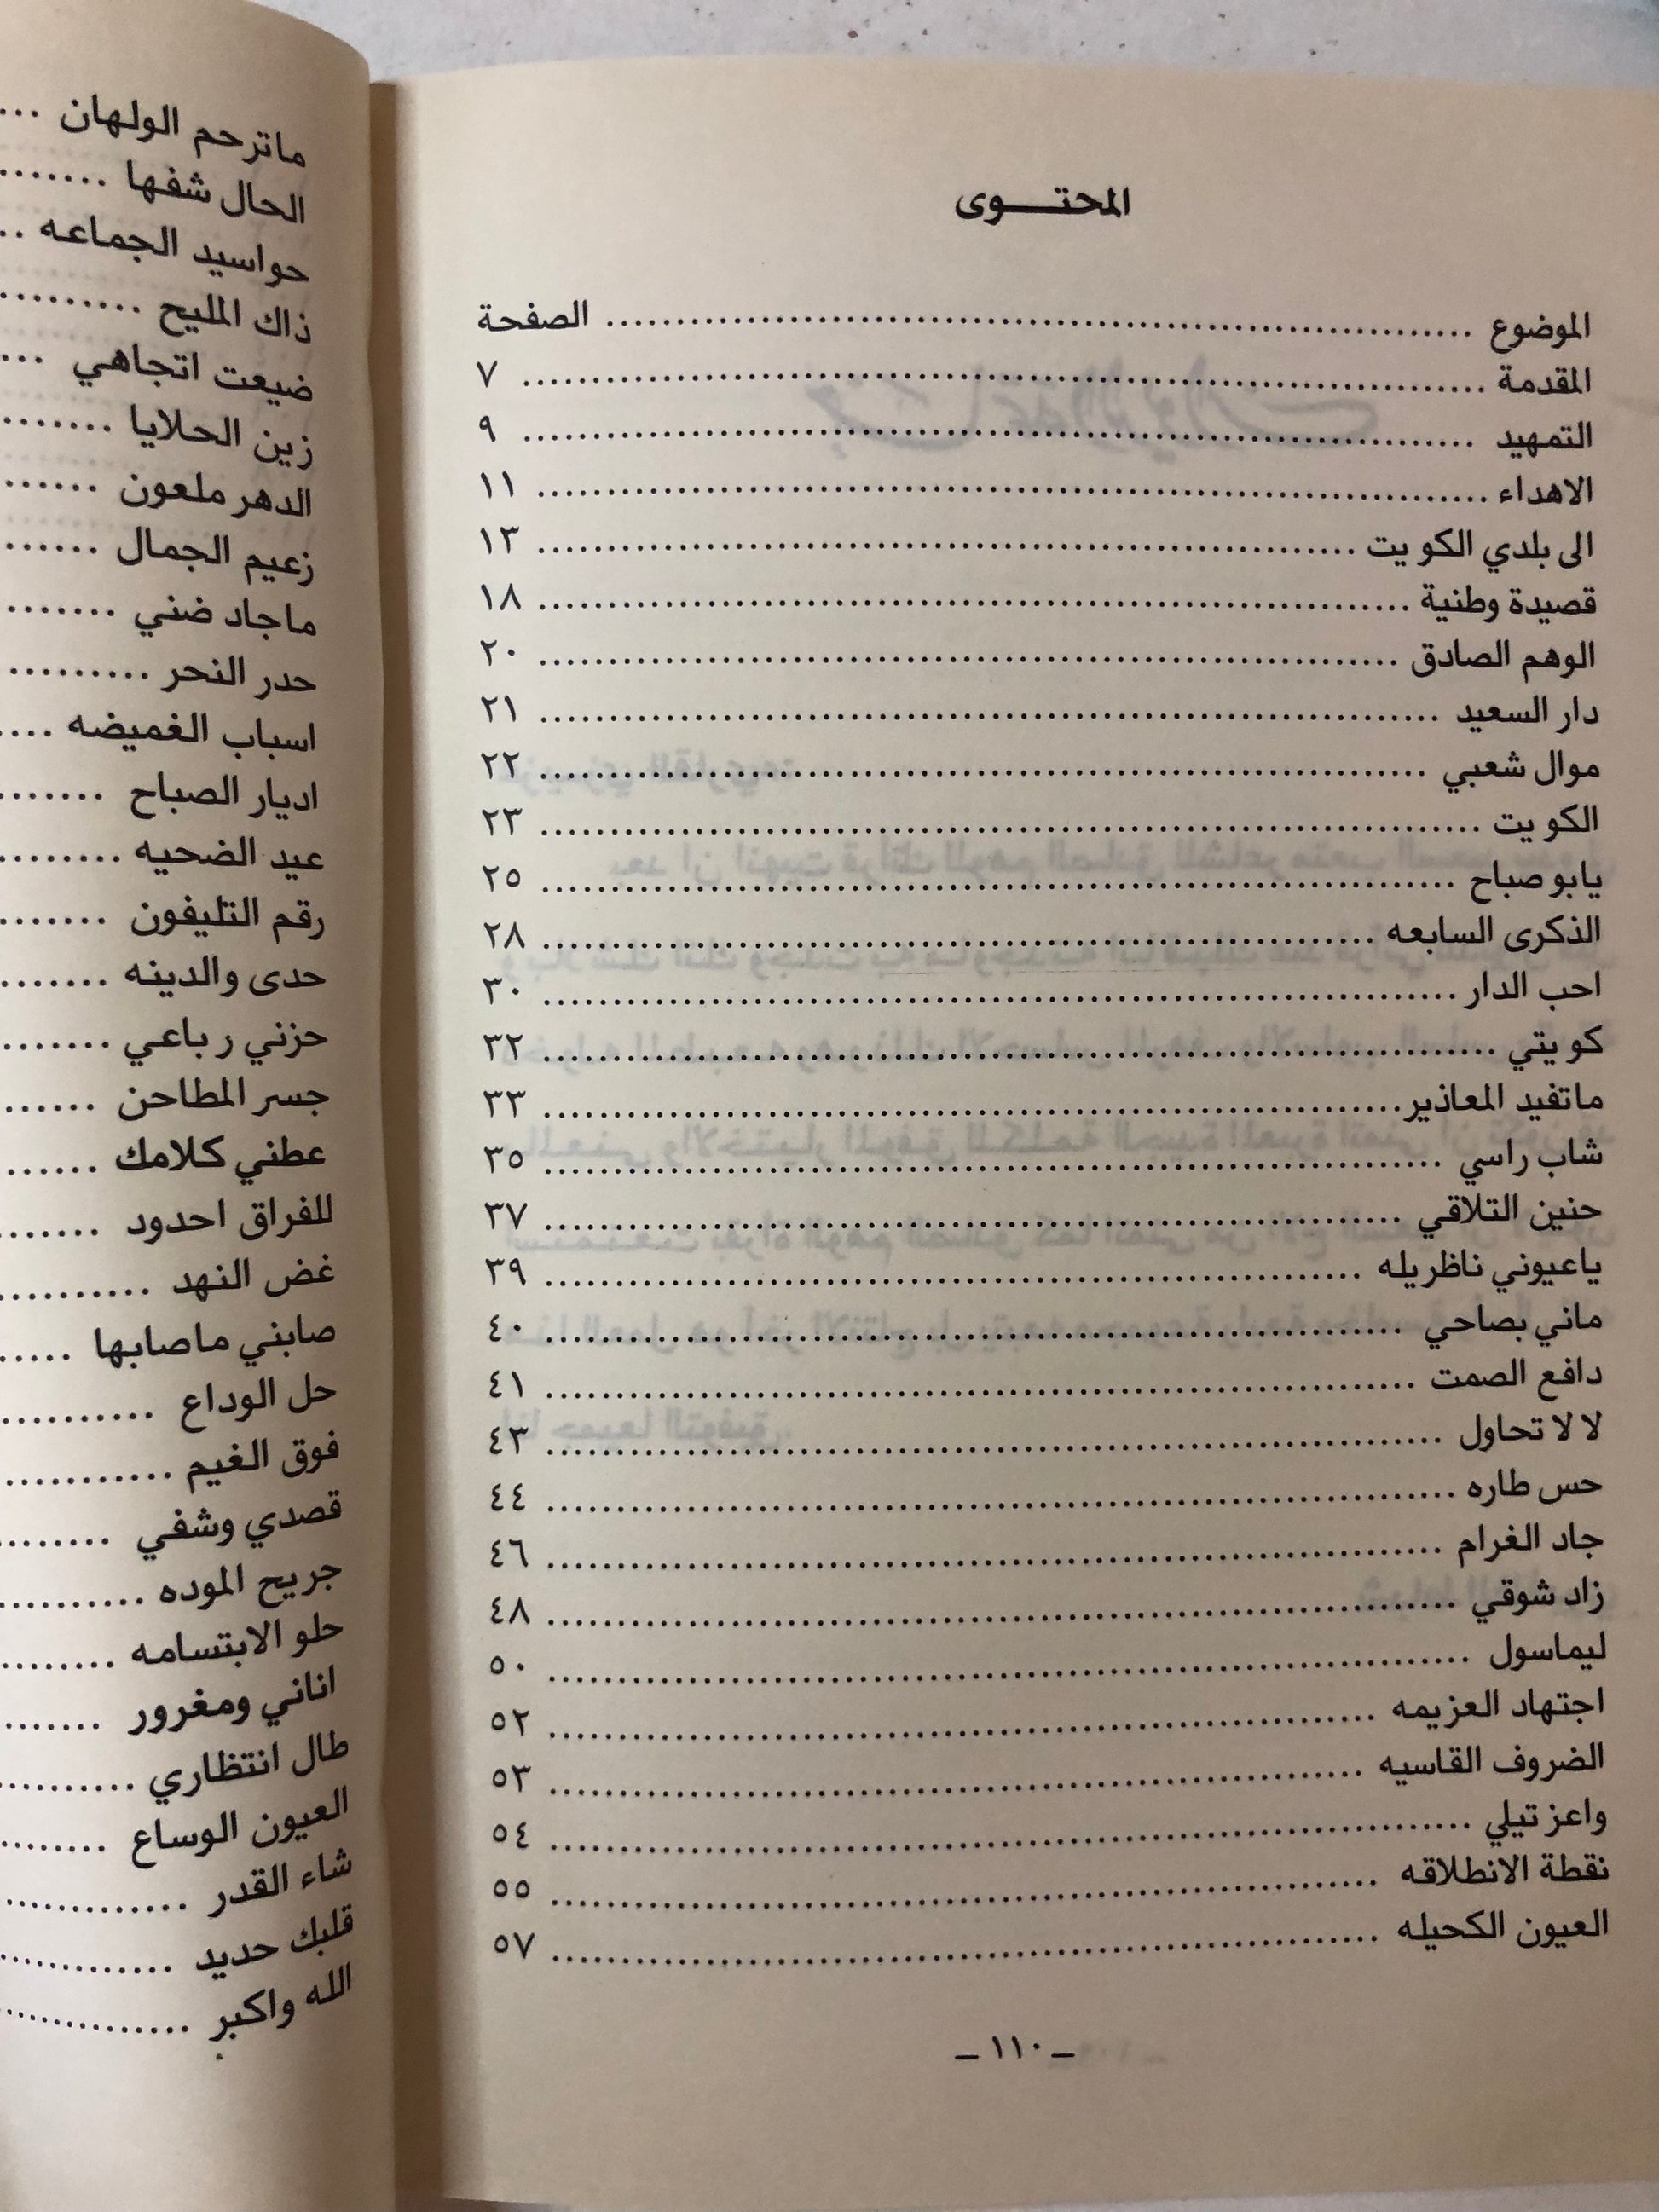 المحتـــوى
الموضوع ........ الصفحة
المقدمة ........ ٧
التمهيد ........ ٩
الاهداء ........ ١١
الى بلدي الكويت ........ ١٣
قصيدة وطنية ........ ١٨
الوهم الصادق ........ ٢٠
دار السعيد ........ ٢١
موال شعبي ........ ٢٢
الكويت ........ ٢٣
يابو صباح ........ ٢٥
الذكرى السابعه ........ ٢٨
احب الدار ........ ٣٠
كويتي ........ ٣٢
ماتفيد المعاذير ........ ٣٣
شاب راسي ........ ٣٥
حنين التلاقي ........ ٣٧
ياعيوني ناظريله ........ ٣٩
ماني بصاحي ........ ٤٠
دافع الصمت ........ ٤١
لا لا تحاول ........ ٤٣
حس طاره ........ ٤٤
جاد الغرام ........ ٤٦
زاد شوقي ........ ٤٨
ليماسول ........ ٥٠
اجتهاد العزيمه ........ ٥٢
الضروف القاسيه ........ ٥٣
واعز تيلي ........ ٥٤
نقطة الانطلاقه ........ ٥٥
العيون الكحيله ........ ٥٧
ـ ١١٠ ـ
ماترحم الولهان ...
الحال شفها .......
حواسيد الجماعه ..
ذاك المليح .........
ضيعت اتجاهي ...
زين الحلايا .......
الدهر ملعون ......
زعيم الجمال ......
ماجاد ضني .......
حدر النحر .........
اسباب الغميضه ....
اديار الصباح .......
عيد الضحيه ........
رقم التليفون .......
حدى والدينه .......
حزني رباعي .......
جسر المطاحن ......
عطني كلامك ......
للفراق احدود .......
غض النهد ..........
صابني ماصابها .....
حل الوداع ..........
فوق الغيم ...........
قصدي وشفي ........
جريح الموده ..........
حلو الابتسامه ........
اناني ومغرور .......
طال انتظاري ..........
العيون الوساع ........
شاء القدر .............
قلبك حديد .............
الله واكبر ..............